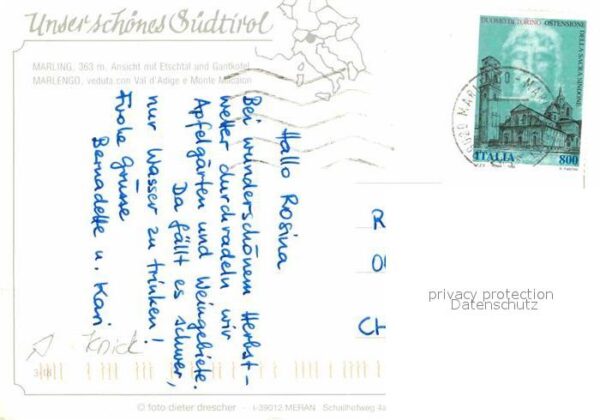 Unser schönes Südtirol
MARLING, 363 m, Ansicht mit Etschtal und Gantkofel
MARLENGO, veduta con Val d'Adige e Monte Macaion
DUOMO DI TORINO · OSTENSIONE
DELLA SACRA SINDONE
ITALIA 800
Hallo Rosina
Bei wunderschönem Herbst-
wetter durchradeln wir
Apfelgärten und Weingebiete.
Da fällt es schwer,
nur Wasser zu trinken!
Frohe Grüsse
Bernadette u. Kari
Knick
privacy protection
Datenschutz
© foto dieter drescher - I-39012 MERAN Schallhofweg 4a